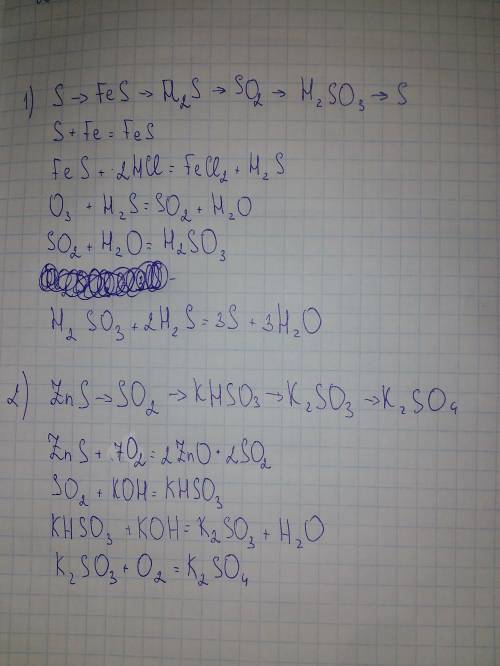 1) S → FeS → H₂S → SO₂ → H₂SO₃ → S
S + Fe = FeS
FeS + 2HCl = FeCl₂ + H₂S
O₃ + H₂S = SO₂ + H₂O
SO₂ + H₂O = H₂SO₃
H₂SO₃ + 2H₂S = 3S + 3H₂O
2) ZnS → SO₂ → KHSO₃ → K₂SO₃ → K₂SO₄
ZnS + 7O₂ = 2ZnO · 2SO₂
SO₂ + KOH = KHSO₃
KHSO₃ + KOH = K₂SO₃ + H₂O
K₂SO₃ + O₂ = K₂SO₄